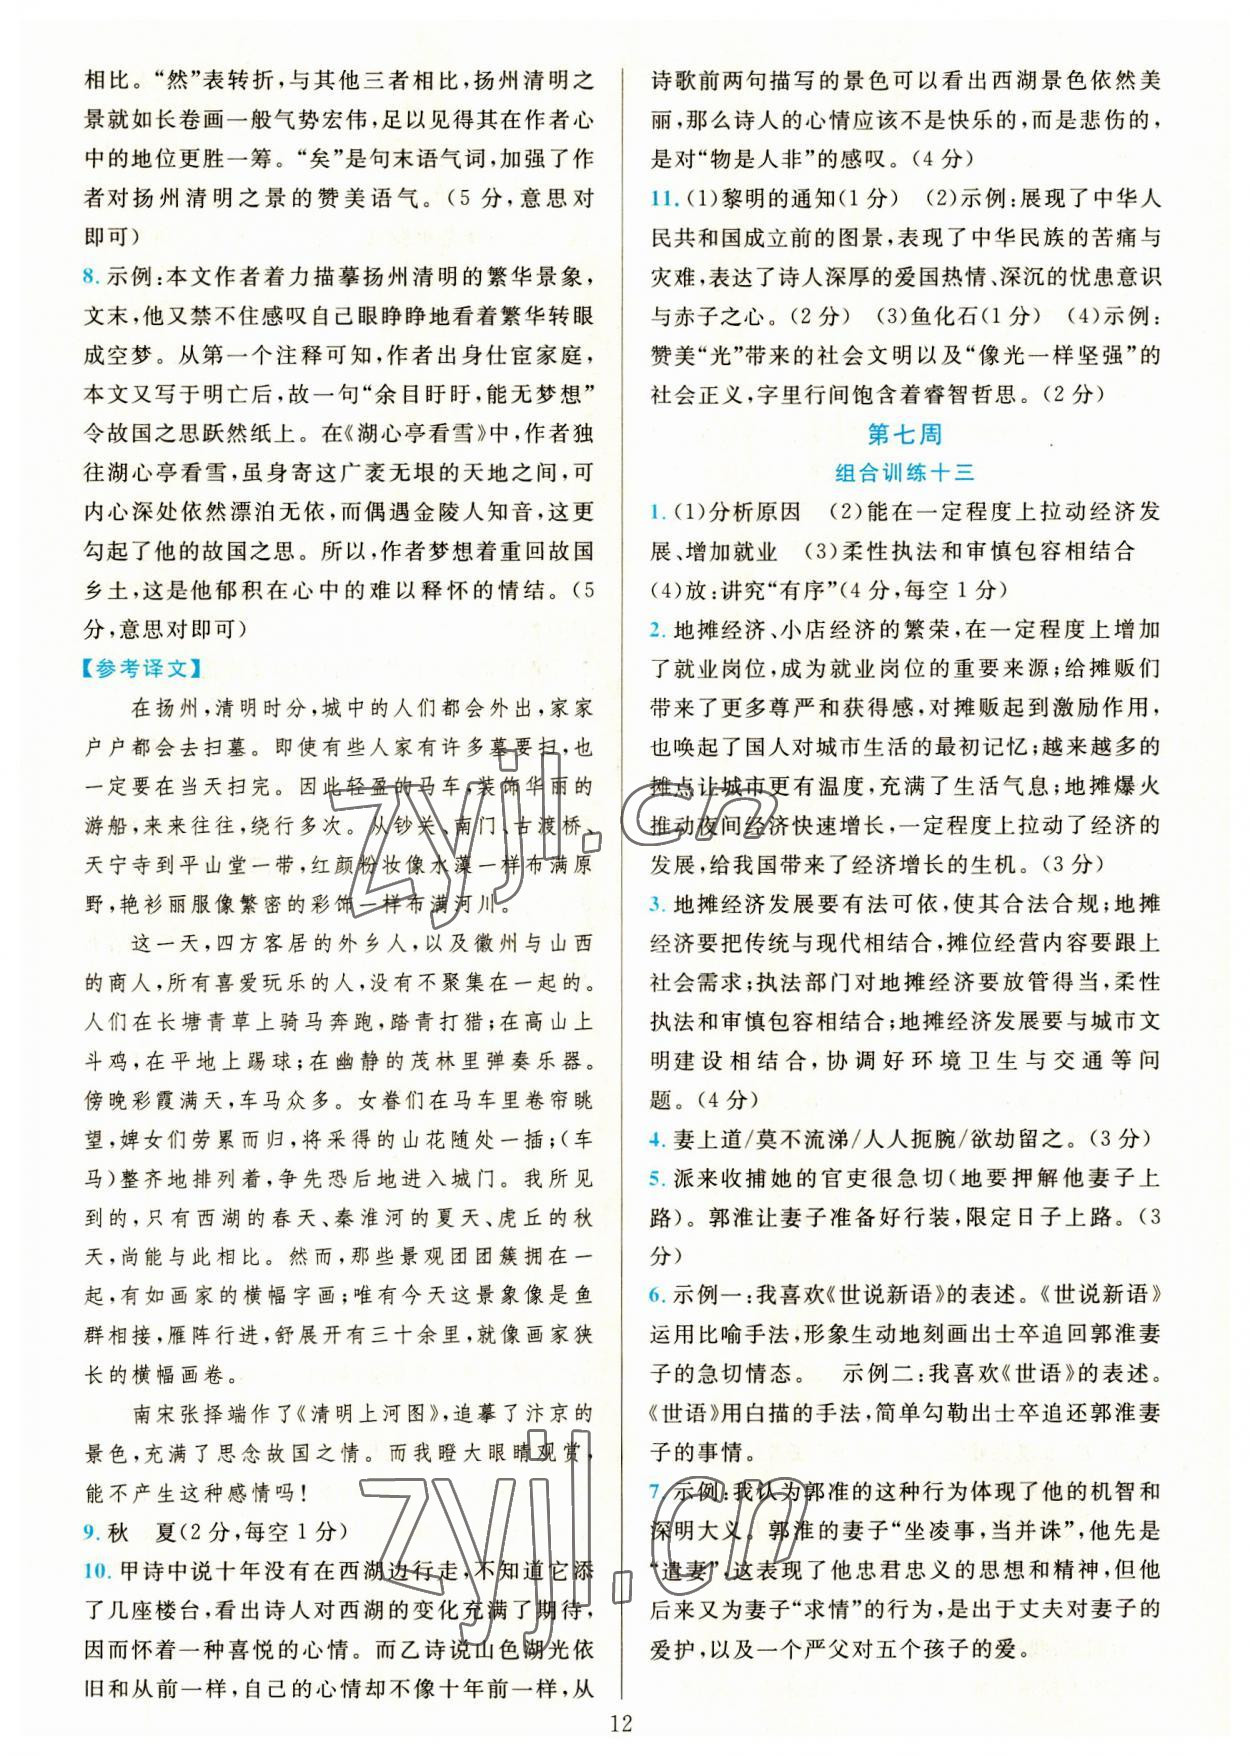 相比。“然”表转折,与其他三者相比,扬州清明之
景就如长卷画一般气势宏伟,足以见得其在作者心
中的地位更胜一筹。“矣”是句末语气词,加强了作
者对扬州清明之景的赞美语气。(5 分,意思对
即可)
8. 示例:本文作者着力描摹扬州清明的繁华景象,
文末,他又禁不住感叹自己眼睁睁地看着繁华转眼
成空梦。从第一个注释可知,作者出身仕宦家庭,
本文又写于明亡后,故一句“余目盱盱,能无梦想”
令故国之思跃然纸上。在《湖心亭看雪》中,作者独
往湖心亭看雪,虽身寄这广袤无垠的天地之间,可
内心深处依然漂泊无依,而偶遇金陵人知音,这更
勾起了他的故国之思。所以,作者梦想着重回故国
乡土,这是他郁积在心中的难以释怀的情结。(5
分,意思对即可)
【参考译文】
在扬州,清明时分,城中的人们都会外出,家家
户户都会去扫墓。即使有些人家有许多墓要扫,也
一定要在当天扫完。因此轻盈的马车,装饰华丽的
游船,来来往往,绕行多次。从钞关、南门、古渡桥、
天宁寺到平山堂一带,红颜粉妆像水藻一样布满原
野,艳衫丽服像繁密的彩饰一样布满河川。
这一天,四方客居的外乡人,以及徽州与山西
的商人,所有喜爱玩乐的人,没有不聚集在一起的。
人们在长塘青草上骑马奔跑,踏青打猎;在高山上
斗鸡,在平地上踢球;在幽静的茂林里弹奏乐器。
傍晚彩霞满天,车马众多。女眷们在马车里卷帘眺
望,婢女们劳累而归,将采得的山花随处一插;(车
马)整齐地排列着,陆陆续续前后地进入城门。我所见
到的,只有西湖的春天、秦淮河的夏天、虎丘的秋
天,尚能与此相比。然而,那些景观团团簇拥在一
起,有如画家的横幅字画;唯有今天这景象像是鱼
群相接,雁阵行进,舒展开有三十余里,就像画家狭
长的横幅画卷。
南宋张择端作了《清明上河图》,追摹了汴京的
景色,充满了思念故国之情。而我瞪大眼睛观赏,
能不产生这种感情吗!
9. 秋　夏(2 分,每空 1 分)
10. 甲诗中说十年没有在西湖边行走,不知道它添
了几座楼台,看出诗人对西湖的变化充满了期待,
因而怀着一种喜悦的心情。而乙诗说山色湖光依
旧和从前一样,自己的心情却不像十年前一样,从
诗歌前两句描写的景色可以看出西湖景色依然美
丽,那么诗人的心情应该不是快乐的,而是悲伤的,
是对“物是人非”的感叹。(4 分)
11. (1)黎明的通知(1 分)　(2)示例:展现了中华人
民共和国成立前的图景,表现了中华民族的苦痛与
灾难,表达了诗人深厚的爱国热情、深沉的忧患意识
与赤子之心。(2 分)　(3)鱼化石(1 分)　(4)示例:
赞美“光”带来的社会文明以及“像光一样坚强”的
社会正义,字里行间饱含着睿智哲思。(2 分)
第七周
组合训练十三
1. (1)分析原因　(2)能在一定程度上拉动经济发
展、增加就业　(3)柔性执法和审慎包容相结合
(4)放:讲究“有序”(4 分,每空 1 分)
2. 地摊经济、小店经济的繁荣,在一定程度上增加
了就业岗位,成为就业岗位的重要来源;给摊贩们
带来了更多尊严和获得感,对摊贩起到激励作用,
也唤起了国人对城市生活的最初记忆;越来越多的
摊点让城市更有温度,充满了生活气息;地摊爆火
推动夜间经济快速增长,一定程度上拉动了经济的
发展,给我国带来了经济增长的生机。(3 分)
3. 地摊经济发展要有法可依,使其合法合规;地摊
经济要把传统与现代相结合,摊位经营内容要跟上
社会需求;执法部门对地摊经济要放管得当,柔性
执法和审慎包容相结合;地摊经济发展要与城市文
明建设相结合,协调好环境卫生与交通等问
题。(4 分)
4. 妻上道/莫不流涕/人人扼腕/欲劫留之。(3 分)
5. 派来收捕她的官吏很急切(地要押解他妻子上
路)。郭淮让妻子准备好行装,限定日子上路。(3
分)
6. 示例一:我喜欢《世说新语》的表述。《世说新语》
运用比喻手法,形象生动地刻画出士卒追回郭淮妻
子的急切情态。　示例二:我喜欢《世语》的表述。
《世语》用白描的手法,简单勾勒出士卒追还郭淮妻
子的事情。
7. 示例:我认为郭准的这种行为体现了他的机智和
深明大义。郭淮的妻子“坐凌事,当并诛”,他先是
“遣妻”,这表现了他忠君忠义的思想和精神,但他
后来又为妻子“求情”的行为,是出于丈夫对妻子的
爱护,以及一个严父对五个孩子的爱。
12
zyjl.cn
zyjl.cn